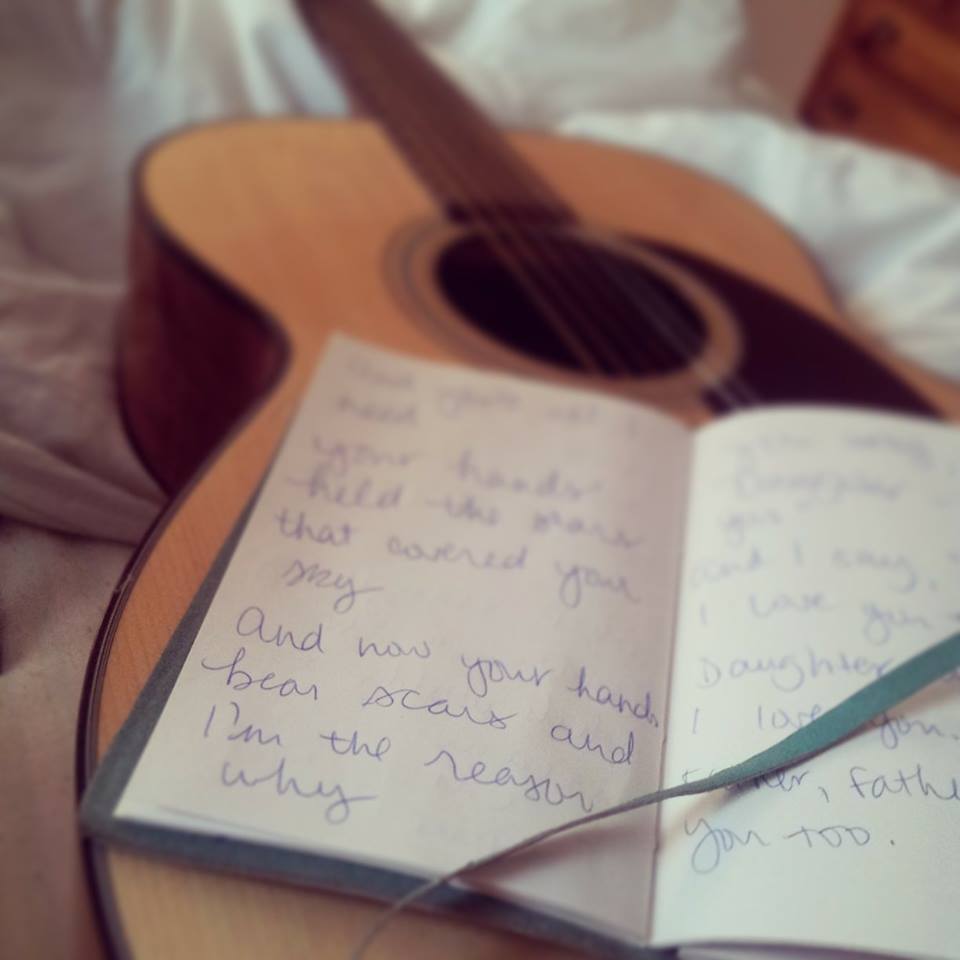 need
your hands
held the stars
that covered your
sky
And now your hands
bear scars and
I'm the reason
why
Daughter
you
and I say,
I love you
Daughter
I love you.
Father, Fathe
you too.